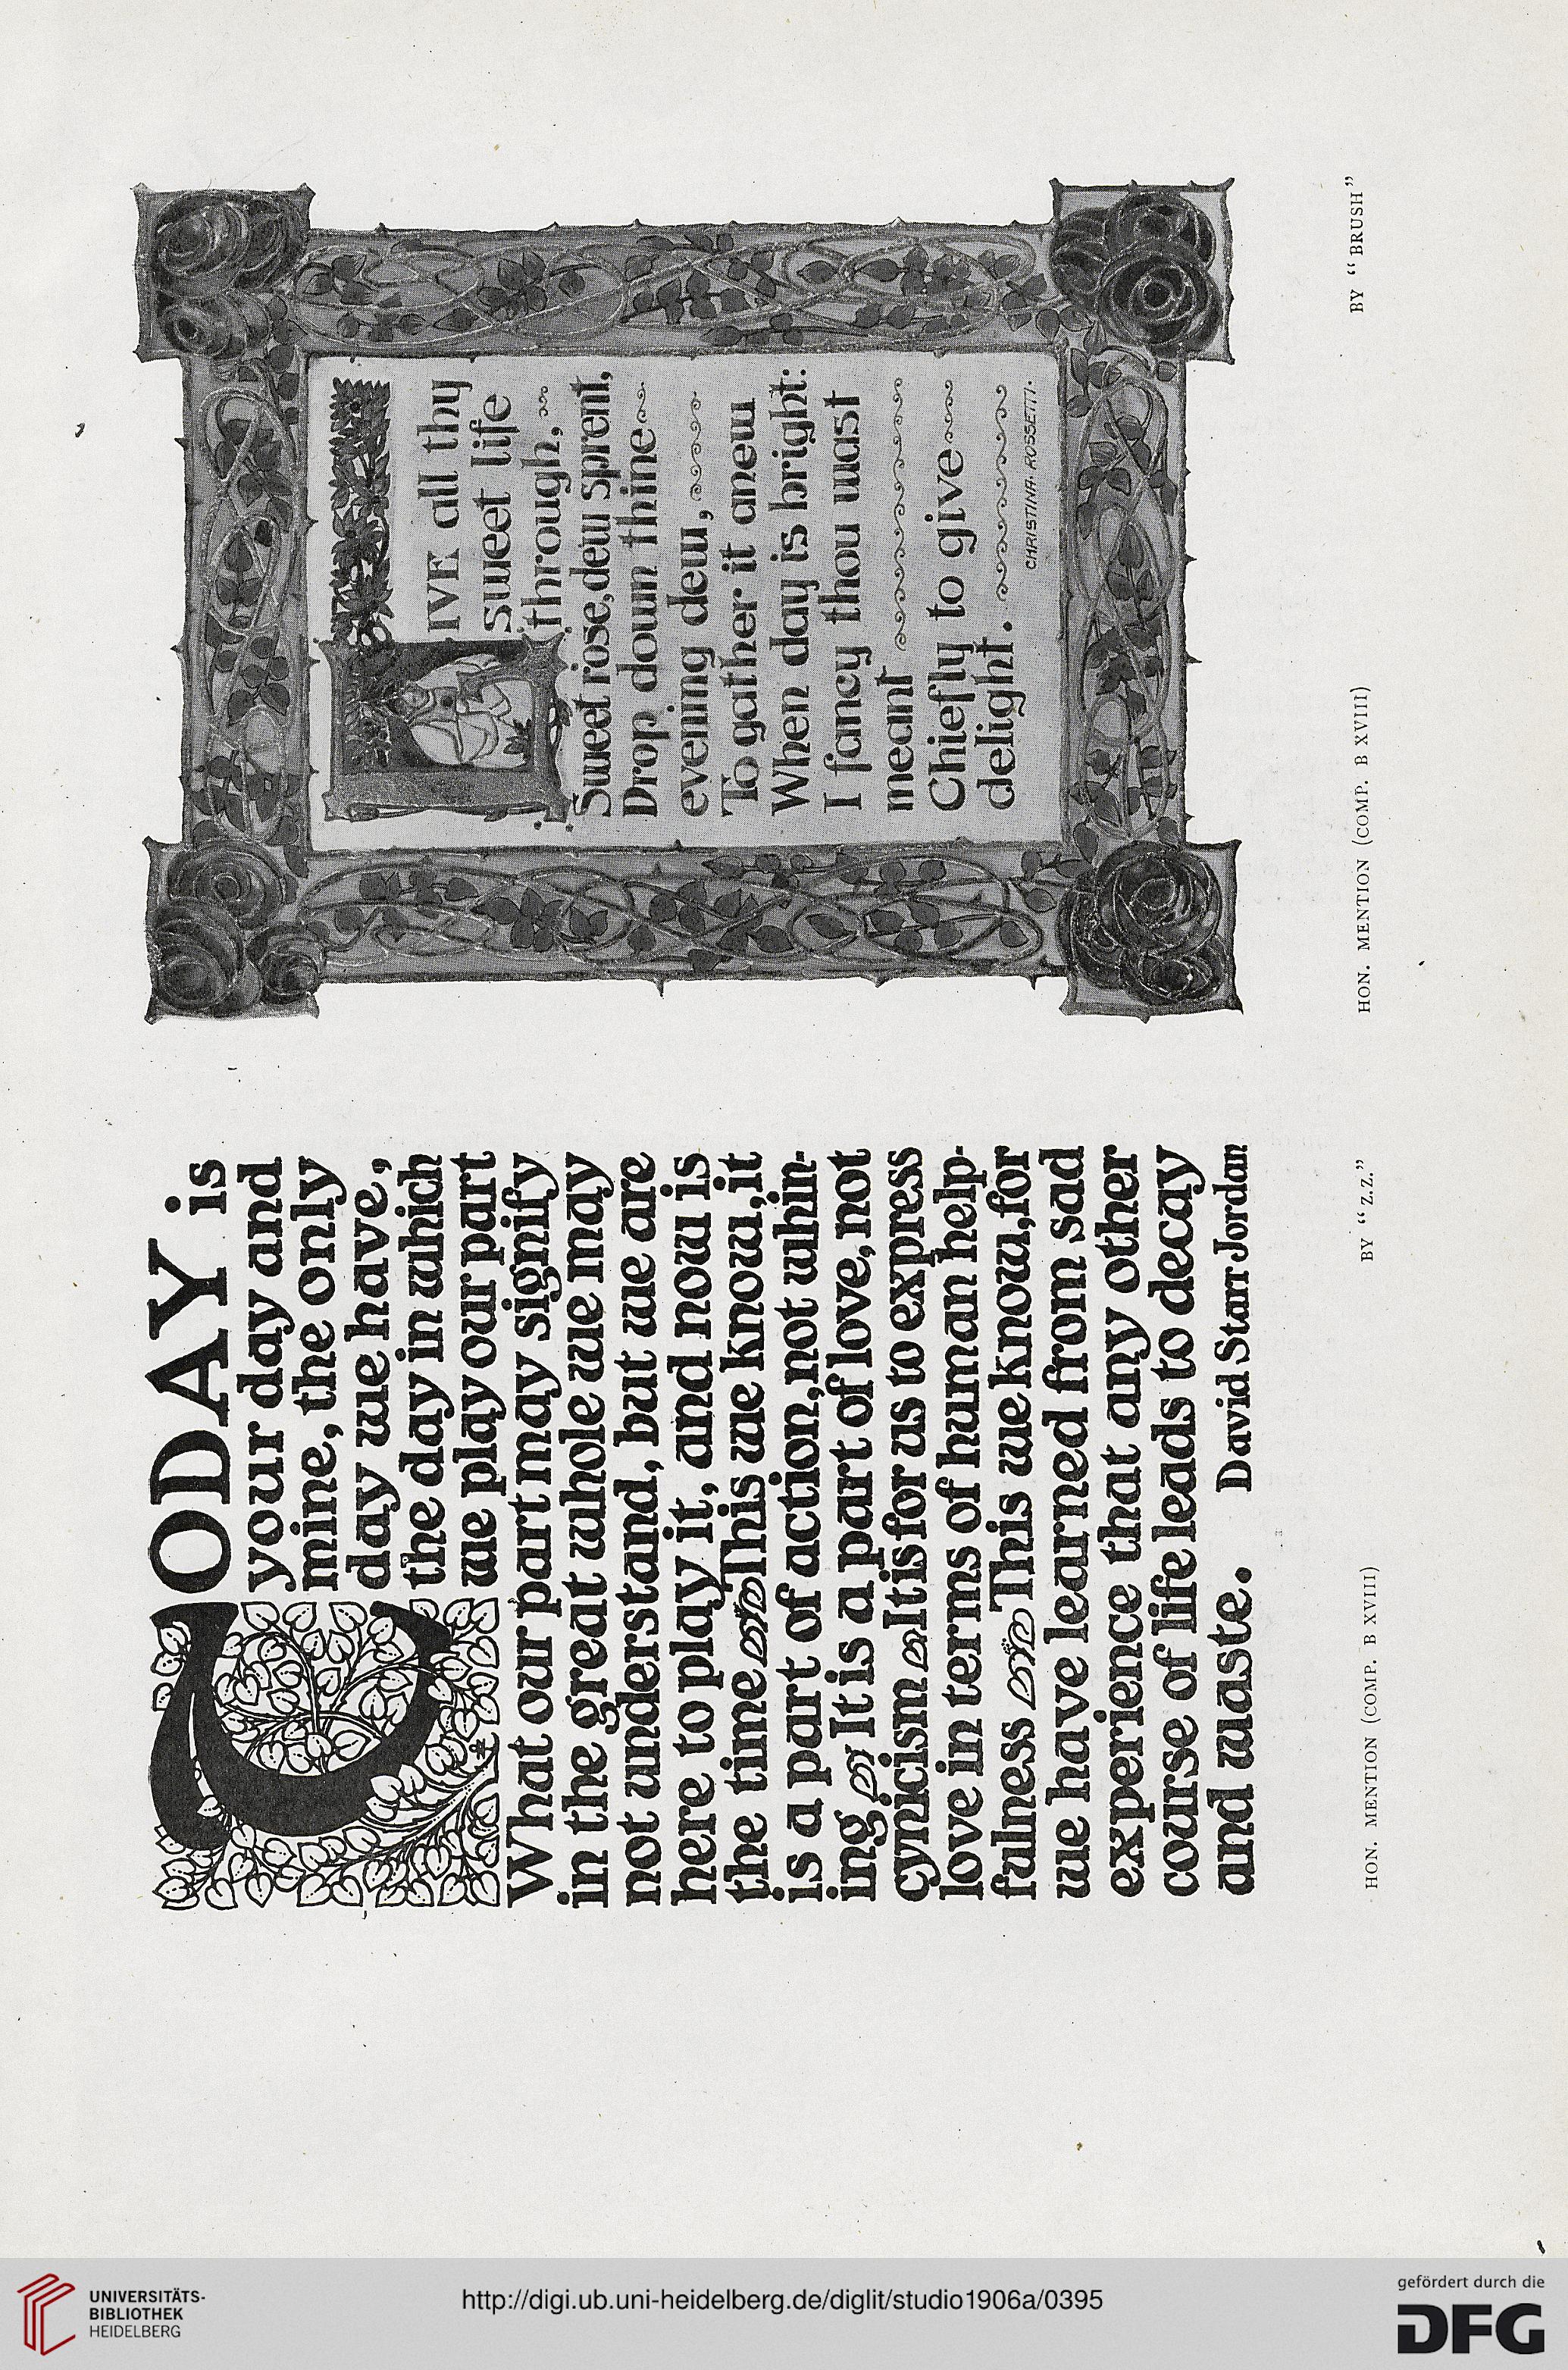 TODAY is
your day and
mine, the only
day we have,
the day in which
we play our part
What our part may signify
in the great whole we may
not understand, but we are
here to play it, and now is
the time This we know, it
is a part of action, not whin-
ing It is a part of love, not
cynicism It is for us to express
love in terms of human help-
fulness This we know, for
we have learned from sad
experience that any other
course of life leads to decay
and waste. David Starr Jordan
HON. MENTION (COMP. B XVIII) BY “Z.Z.”
LIVE all thy
sweet life
through,
Sweet rose, dew sprent,
Drop down thine
evening dew,
To gather it anew
When day is bright:
I fancy thou wast
meant
Chiefly to give
delight.
CHRISTINA. ROSSETTI.
HON. MENTION (COMP. B XVIII) BY “BRUSH”
UNIVERSITÄTS-
BIBLIOTHEK
HEIDELBERG
http://digi.ub.uni-heidelberg.de/diglit/studio1906a/0395
gefördert durch die
DFG